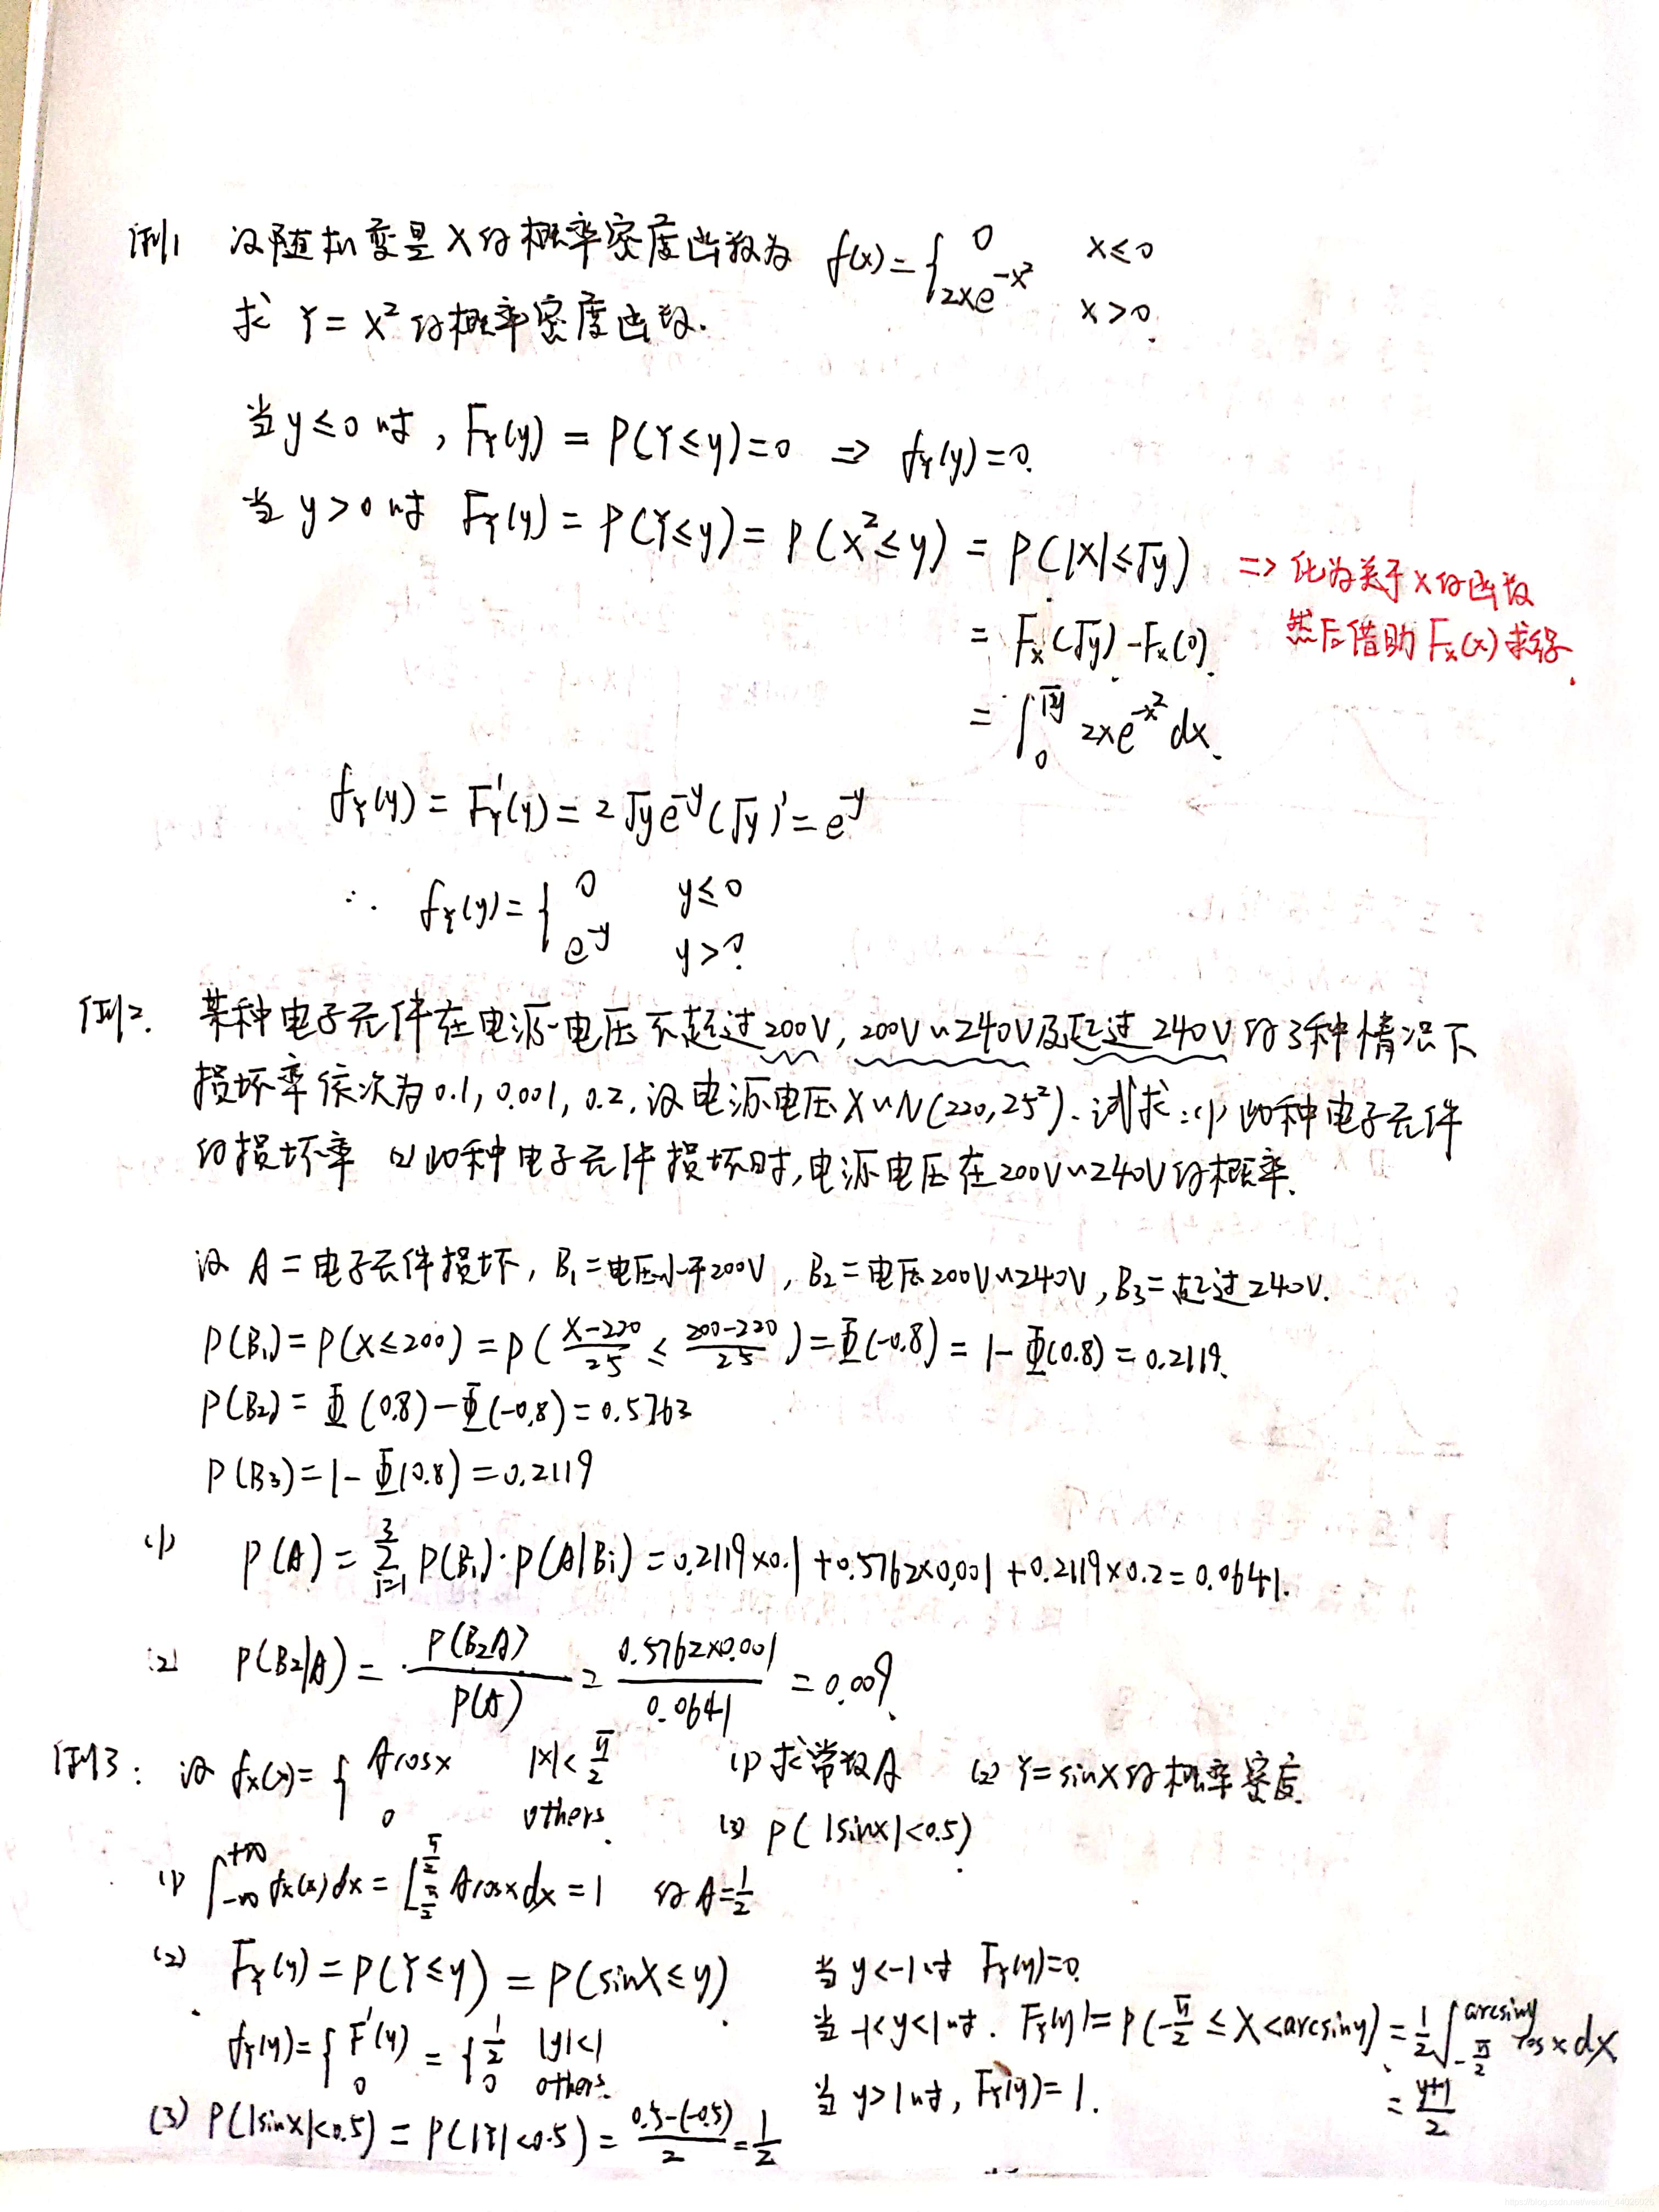 例1 设随机变量X的概率密度函数为 f(x)={0 x≤0
2xe^{-x²} x>0.
求 Y=X²的概率密度函数.
当y≤0时, F_Y(y)=P(Y≤y)=0 ⇒ f_Y(y)=0.
当y>0时 F_Y(y)=P(Y≤y)=P(X²≤y)=P(|X|≤√y) ⇒化为关于X的函数
=F_X(√y)-F_X(0). 然后借助F_X(x)求得.
=∫_0^{√y} 2xe^{-x²}dx.
f_Y(y)=F_Y'(y)=2√y e^{-y}(√y)'=e^{-y}
∴ f_Y(y)={0 y≤0
e^{-y} y>0.
例2. 某种电子元件在电源电压不超过200V,200V~240V及超过240V的3种情况下
损坏率依次为0.1,0.001,0.2.设电源电压X~N(220,25²).试求:(1)此种电子元件
的损坏率 (2)此种电子元件损坏时,电源电压在200V~240V的概率.
设 A=电子元件损坏, B₁=电压小于200V, B₂=电压200V~240V, B₃=超过240V.
P(B₁)=P(X≤200)=P((X-220)/25≤(200-220)/25)=Φ(-0.8)=1-Φ(0.8)=0.2119.
P(B₂)=Φ(0.8)-Φ(-0.8)=0.5763
P(B₃)=1-Φ(0.8)=0.2119
(1) P(A)=∑_{i=1}^{3}P(Bᵢ)·P(A|Bᵢ)=0.2119×0.1+0.5762×0.001+0.2119×0.2=0.0641.
(2) P(B₂|A)=P(B₂A)/P(A)=0.5762×0.001/0.0641=0.009.
例3: 设 f_X(x)={Acosx |x|<π/2 (1)求常数A (2)Y=sinX的概率密度.
0 others. (3) P(|sinx|<0.5).
(1) ∫_{-∞}^{+∞}f_X(x)dx=∫_{-π/2}^{π/2}Acosxdx=1 得A=1/2
(2) F_Y(y)=P(Y≤y)=P(sinX≤y). 当y<-1时 F_Y(y)=0.
f_Y(y)={F'(y) 0 ={1/2 |y|<1 0 others. 当-1<y<1时. F_Y(y)=P(-π/2≤X<arcsiny)=1/2∫_{-π/2}^{arcsiny}cosxdx
当y>1时, F_Y(y)=1. =(y+1)/2
(3) P(|sinx|<0.5)=P(|Y|<0.5)=(0.5-(-0.5))/2=1/2